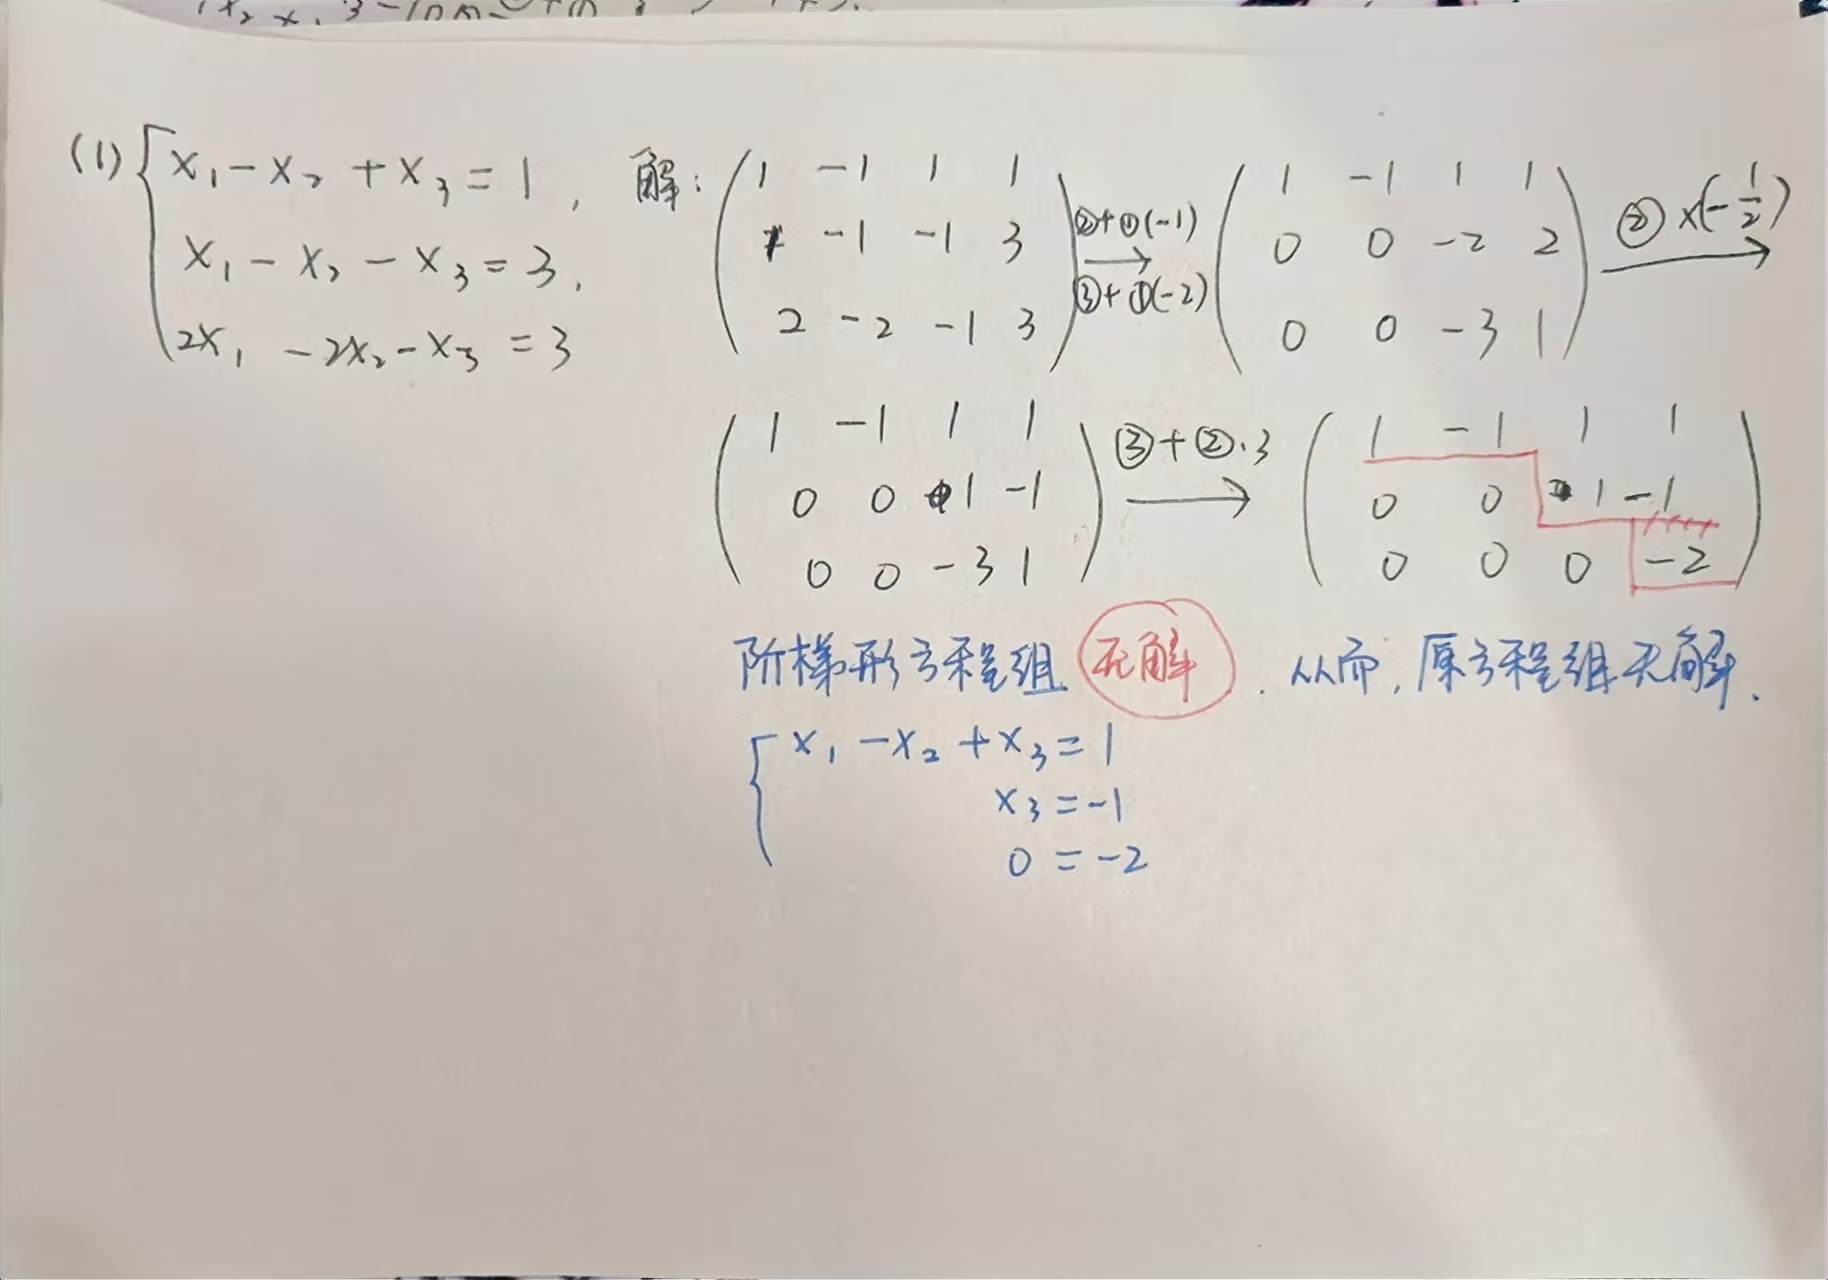 (1) { x₁ - x₂ + x₃ = 1,
x₁ - x₂ - x₃ = 3,
2x₁ - 2x₂ - x₃ = 3
解:
( 1 -1 1 1
1 -1 -1 3
2 -2 -1 3 )
②+①(-1)
③+①(-2)
→
( 1 -1 1 1
0 0 -2 2
0 0 -3 1 )
②×(-1/2)
→
( 1 -1 1 1
0 0 1 -1
0 0 -3 1 )
③+②·3
→
( 1 -1 1 1
0 0 1 -1
0 0 0 -2 )
阶梯形方程组 无解. 从而, 原方程组无解.
{ x₁ - x₂ + x₃ = 1
x₃ = -1
0 = -2